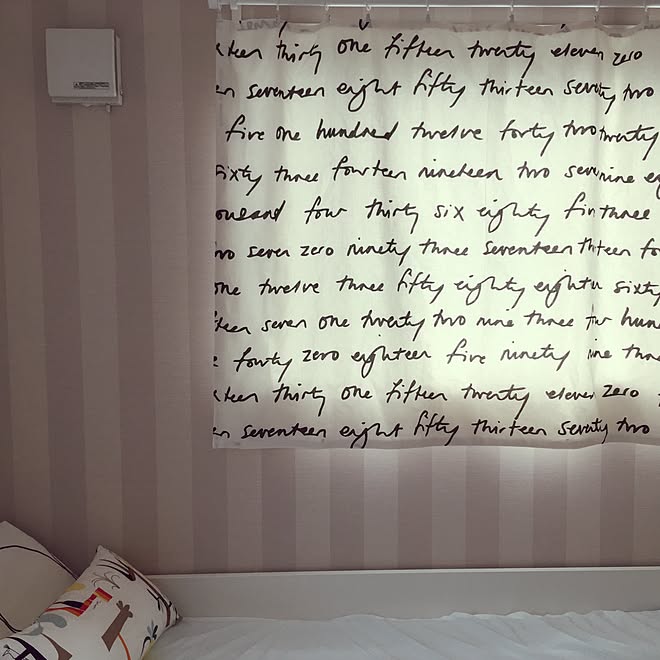 teen thirty one fifteen twenty eleven zero
seventeen eight fifty thirteen seventy two
five one hundred twelve forty two twenty
sixty three fourteen nineteen two nine
ousand four thirty six eighty three
two seven zero ninety three seventeen
one twelve three fifty eighty sixty
teen seven one twenty two nine three
forty zero eighteen five ninety
teen thirty one fifteen twenty eleven zero
seventeen eight fifty thirteen seventy two